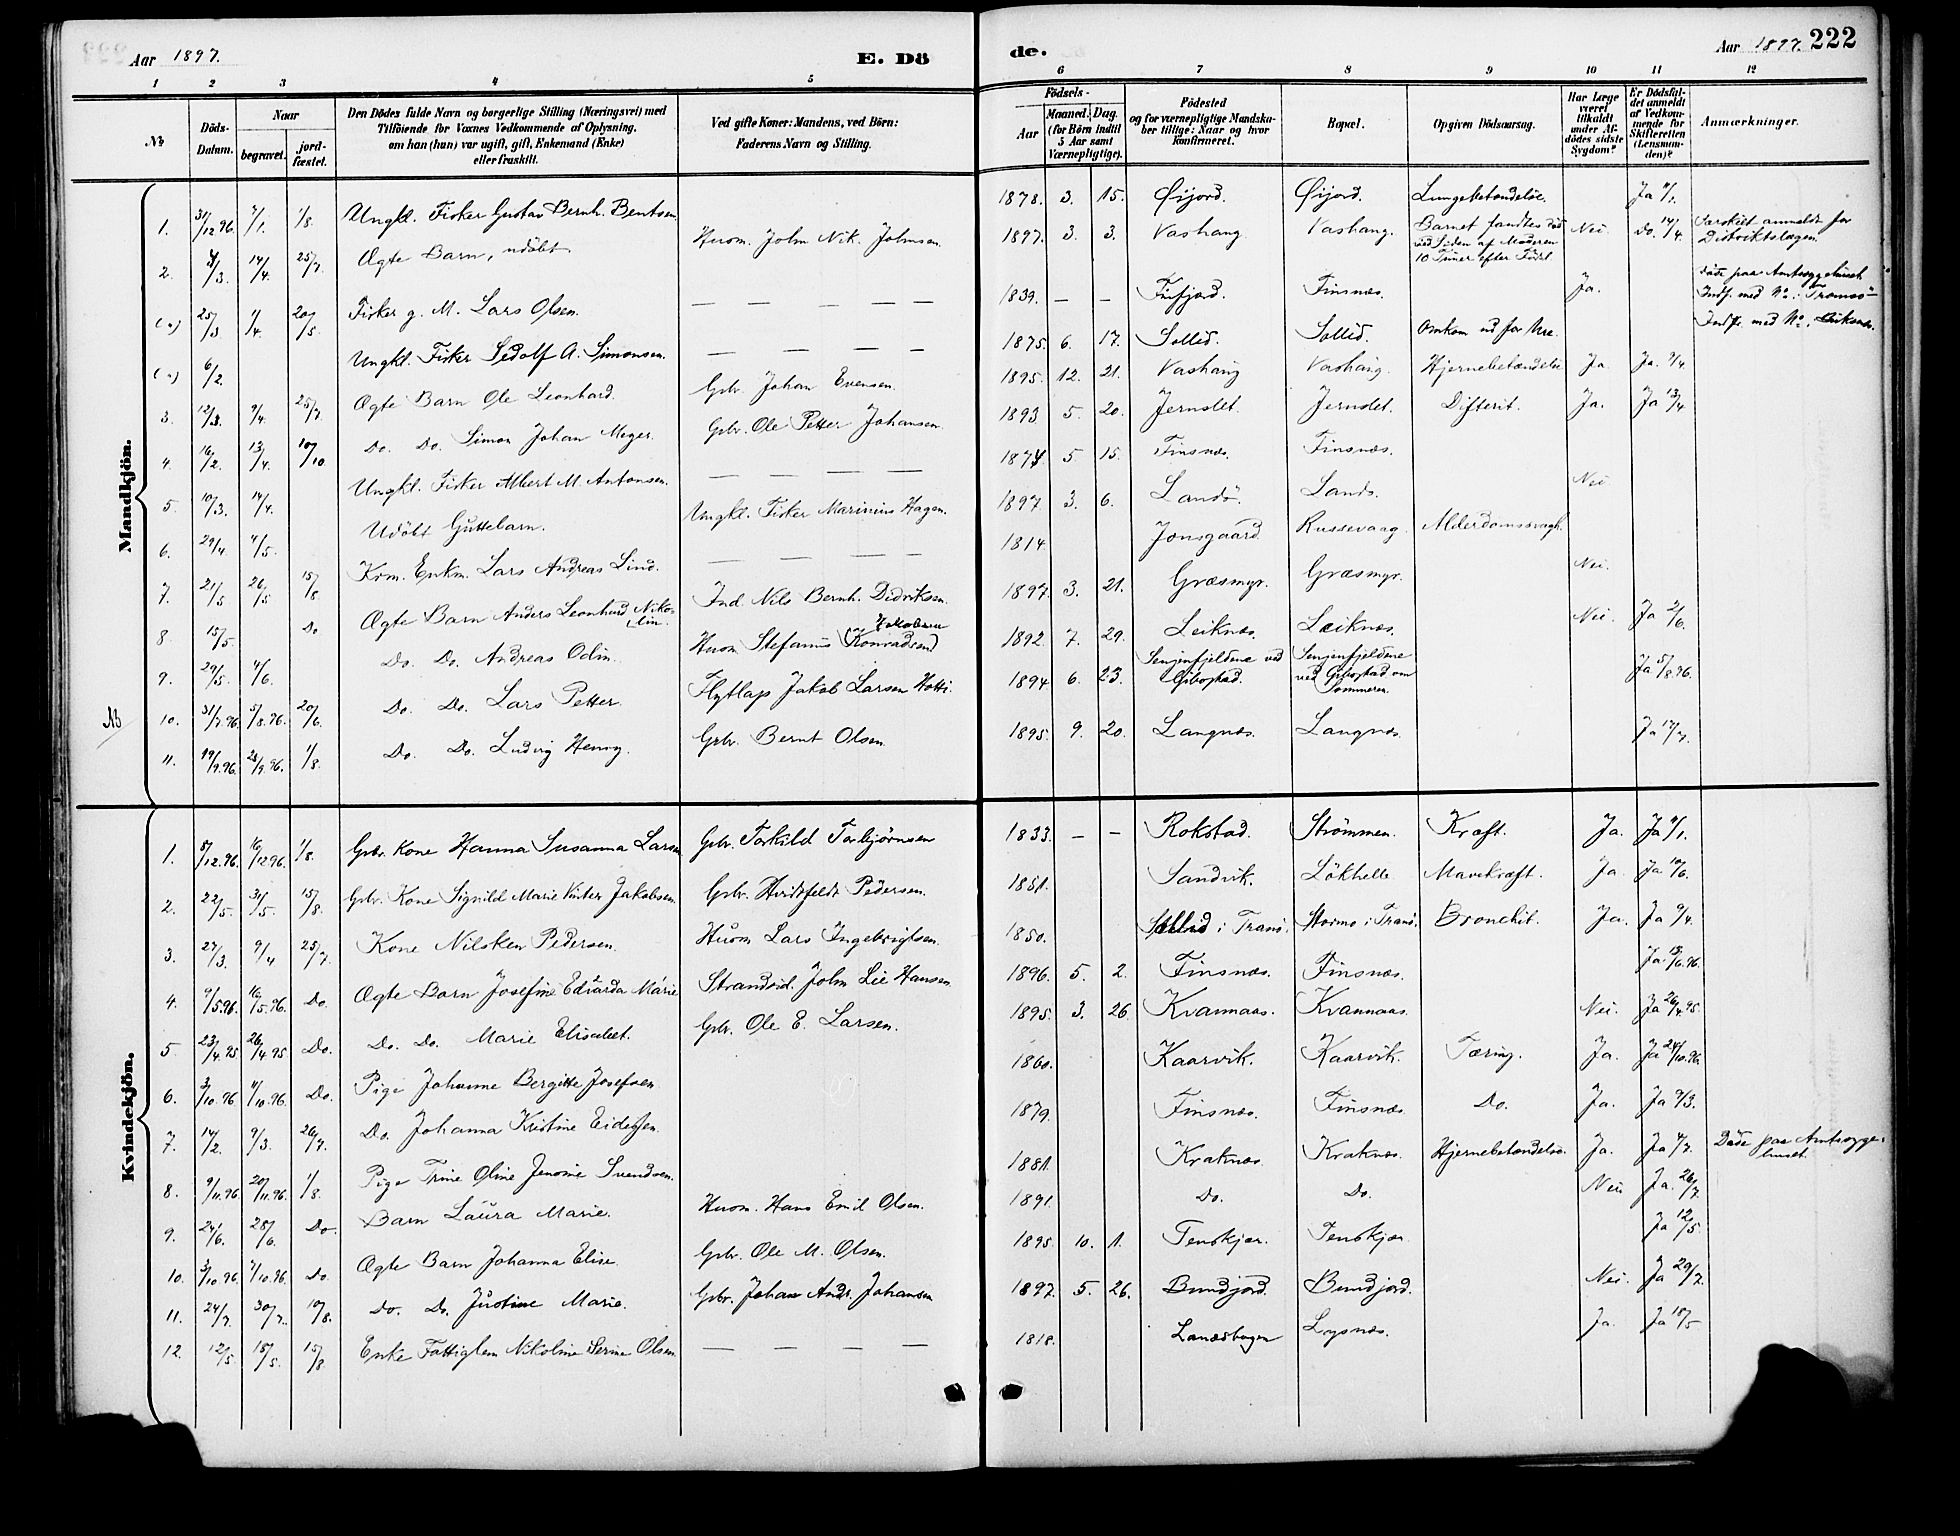 Aar 1897.
E. Dö
de.
Aar 1897. 222
1 2 3 4 5 6 7 8 9 10 11 12
№
Döds-Datum.
Naar
begravet.
jord-fæstet.
Den Dödes fulde Navn og borgerlige Stilling (Næringsvei) med
Tilföiende for Voxnes Vedkommende af Oplysning,
om han (hun) var ugift, gift, Enkemand (Enke)
eller fraskilt.
Ved gifte Koner: Mandens, ved Börn:
Faderens Navn og Stilling.
Födsels-
Aar
Maaned. Dag.
(for Börn indtil
5 Aar samt
Værnepligtige).
Födested
og for værnepligtige Mandska-
ber tillige: Naar og hvor
konfirmeret.
Bopæl.
Opgiven Dödsaarsag.
Har Læge
været
tilkaldt
under Af-
dödes sidste
Sygdom?
Er Dödsfal-
det anmeldt
af Vedkom-
mende for
Skifteretten
(Lensman-
den)?
Anmærkninger.
Mandkjön.
1. 31/12 96. 7/1. 1/8. Ungkl. Fisker Gustav Bernh. Bentsen. 1878. 3. 15. Øijord. Øijord. Lungebetændelse. Ja
2. /3. 14/4. 25/7. Ægte Barn, udöbt Huom. John Nik. Johnsen 1897. 3. 3. Vashaug Vashaug. Barnet fandtes död ved Siden af Moderen 10 Timer efter Födsl. Nei. Do. 14/4. Særskilt anmeldt for Distriktslægen
25/3 /4. 20/5. Fisker g. M. Lars Olsen. — — — — — 1839. — — Finfjord. Finsnæs. Ja. Döde paa Amtssygehuset Indf. med No. i Tromsö
6/2. Ungkl. Fisker Sedolf A. Simonsen. — — — — 1875. 6. 17. Sollid. Sollid. Omkom ud for Indf. med No.
3. 12/3. 9/4. 25/7. Ægte Barn Ole Leonhard. Gbr. Johan Evensen. 1895. 12. 21. Vashaug Vashaug. Hjernebetændelse Ja. Ja. 9/4.
4. 16/2. 13/4. 10/10. Do. Do. Simon Johan Meyer. Gbr. Ole Petter Johansen. 1893 5. 20. Jernslet. Jernslet. Difterit. Ja. Ja 13/4
5. 10/3. 14/4. Ungkl. Fisker Albert M. Antonsen. — — — — 1874 5. 15. Finsnæs. Finsnæs.
6. 29/4. 4/5. Udöbt Guttebarn. Ungkl. Fisker Marinius Hagen. 1897. 3. 6. Landö. Nei.
7. 21/5 26/5 15/8 Krm. Enkm. Lars Andreas Lind. — — — — 1814 Jonsgaard Russevaag. Alderdomssvagh.
8. 15/5. Do Ægte Barn Anders Leonhard Nikolin. Ind. Nils Bernh. Didriksen. 1897. 3. 21. Græsmyr. Græsmyr. Nei.
9. 29/5. 4/6. Do. Do. Andreas Odin. Huom Stefanus Konradsen Jakobsen 1892. 7. 29. Leiknæs. Leiknæs. Nei. Ja 2/6.
NB
10. 31/7.96. 5/8.96. 20/6. Do. Do. Lars Petter. Flytlap Jakob Larsen Hotti. 1894 6. 23. Senjenfjeldene ved Gibostad. Senjenfjeldene ved Gibostad om Sommeren Ja 5/8.96.
11. 19/9.96. 28/9.96. 1/8. Do. Do. Ludvig Henry. Gbr. Bernt Olsen. 1895. 9. 20. Langnæs. Langnæs. Ja 17/7.
Kvindekjön.
1. 8/12.96. 16/12 96. 1/8. Gbr. Kone Hanna Susanna Larsen Gbr. Torkild Torbjørnsen 1833. — — Rokstad. Strömmen. Kræft. Ja. Ja
2. 22/5. 31/5. 15/8. Gbr. Kone Signild Marie Vinter Jakobsen. Gbr. Hvidtfeldt Pedersen. 1851. Sandvik. Lökhelle Mavekræft. Ja. Ja 10/6.
3. 27/3. 9/4 25/7. Kone Nilsken Pedersen. Huom Lars Ingebrigtsen. 1850. Sollid i Tranö. Stormo i Tranö. Bronchit. Ja. Ja 9/4.
4. 9/5.96. 16/5.96. Do. Ægte Barn Josefine Edvarda Marie Strandsid. John Lie Hansen 1896. 5. 2. Finsnæs. Finsnæs. Ja 13/6.96.
5. 23/4.95 26/4.95 Do. Do. Do. Marie Elisabet. Gbr. Ole E. Larsen. 1895. 3. 26. Kvannaas. Kvannaas. Nei. Ja 26/4.95.
6. 3/10.96 11/10.96. Do. Pige Johanne Bergitte Josefsen. 1860. Kaarvik. Kaarvik. Tæring. Ja. Ja 24/10.96.
7. 14/2. 9/3. 26/7. Do. Johanna Kristine Eidesen. 1879. Finsnæs. Finsnæs. Do. Ja. Ja 9/3.
8. 9/11.96. 20/11.96. 1/8. Pige Trine Oline Jensine Svendsen. 1881. Kraknæs. Kraknæs. Hjernebetændelse. Ja. Ja Döde paa Amtssygehuset.
9. 24/6. 28/6. Do. Barn Laura Marie. Huom. Hans Emil Olsen. 1891. Do. Do. Nei Ja. 26/7.
10. 3/10.96. 7/10.96. Do. Ægte Barn Johanna Elise. Gbr. Ole M. Olsen. 1895. 10. 1. Tenskjær. Tenskjær Ja 12/5.
11. 24/7. 30/7. 10/8. Do. Do. Justine Marie. Gbr. Johan Andr. Johansen. 1897. 5. 26. Bundjord. Bundjord. Nei. Ja 29/7.
12. 12/5. 18/5. 15/8 Enke Fattiglem Nikoline Serine Olsen. — — — — 1818. Lysnæs. Ja. Ja 18/5